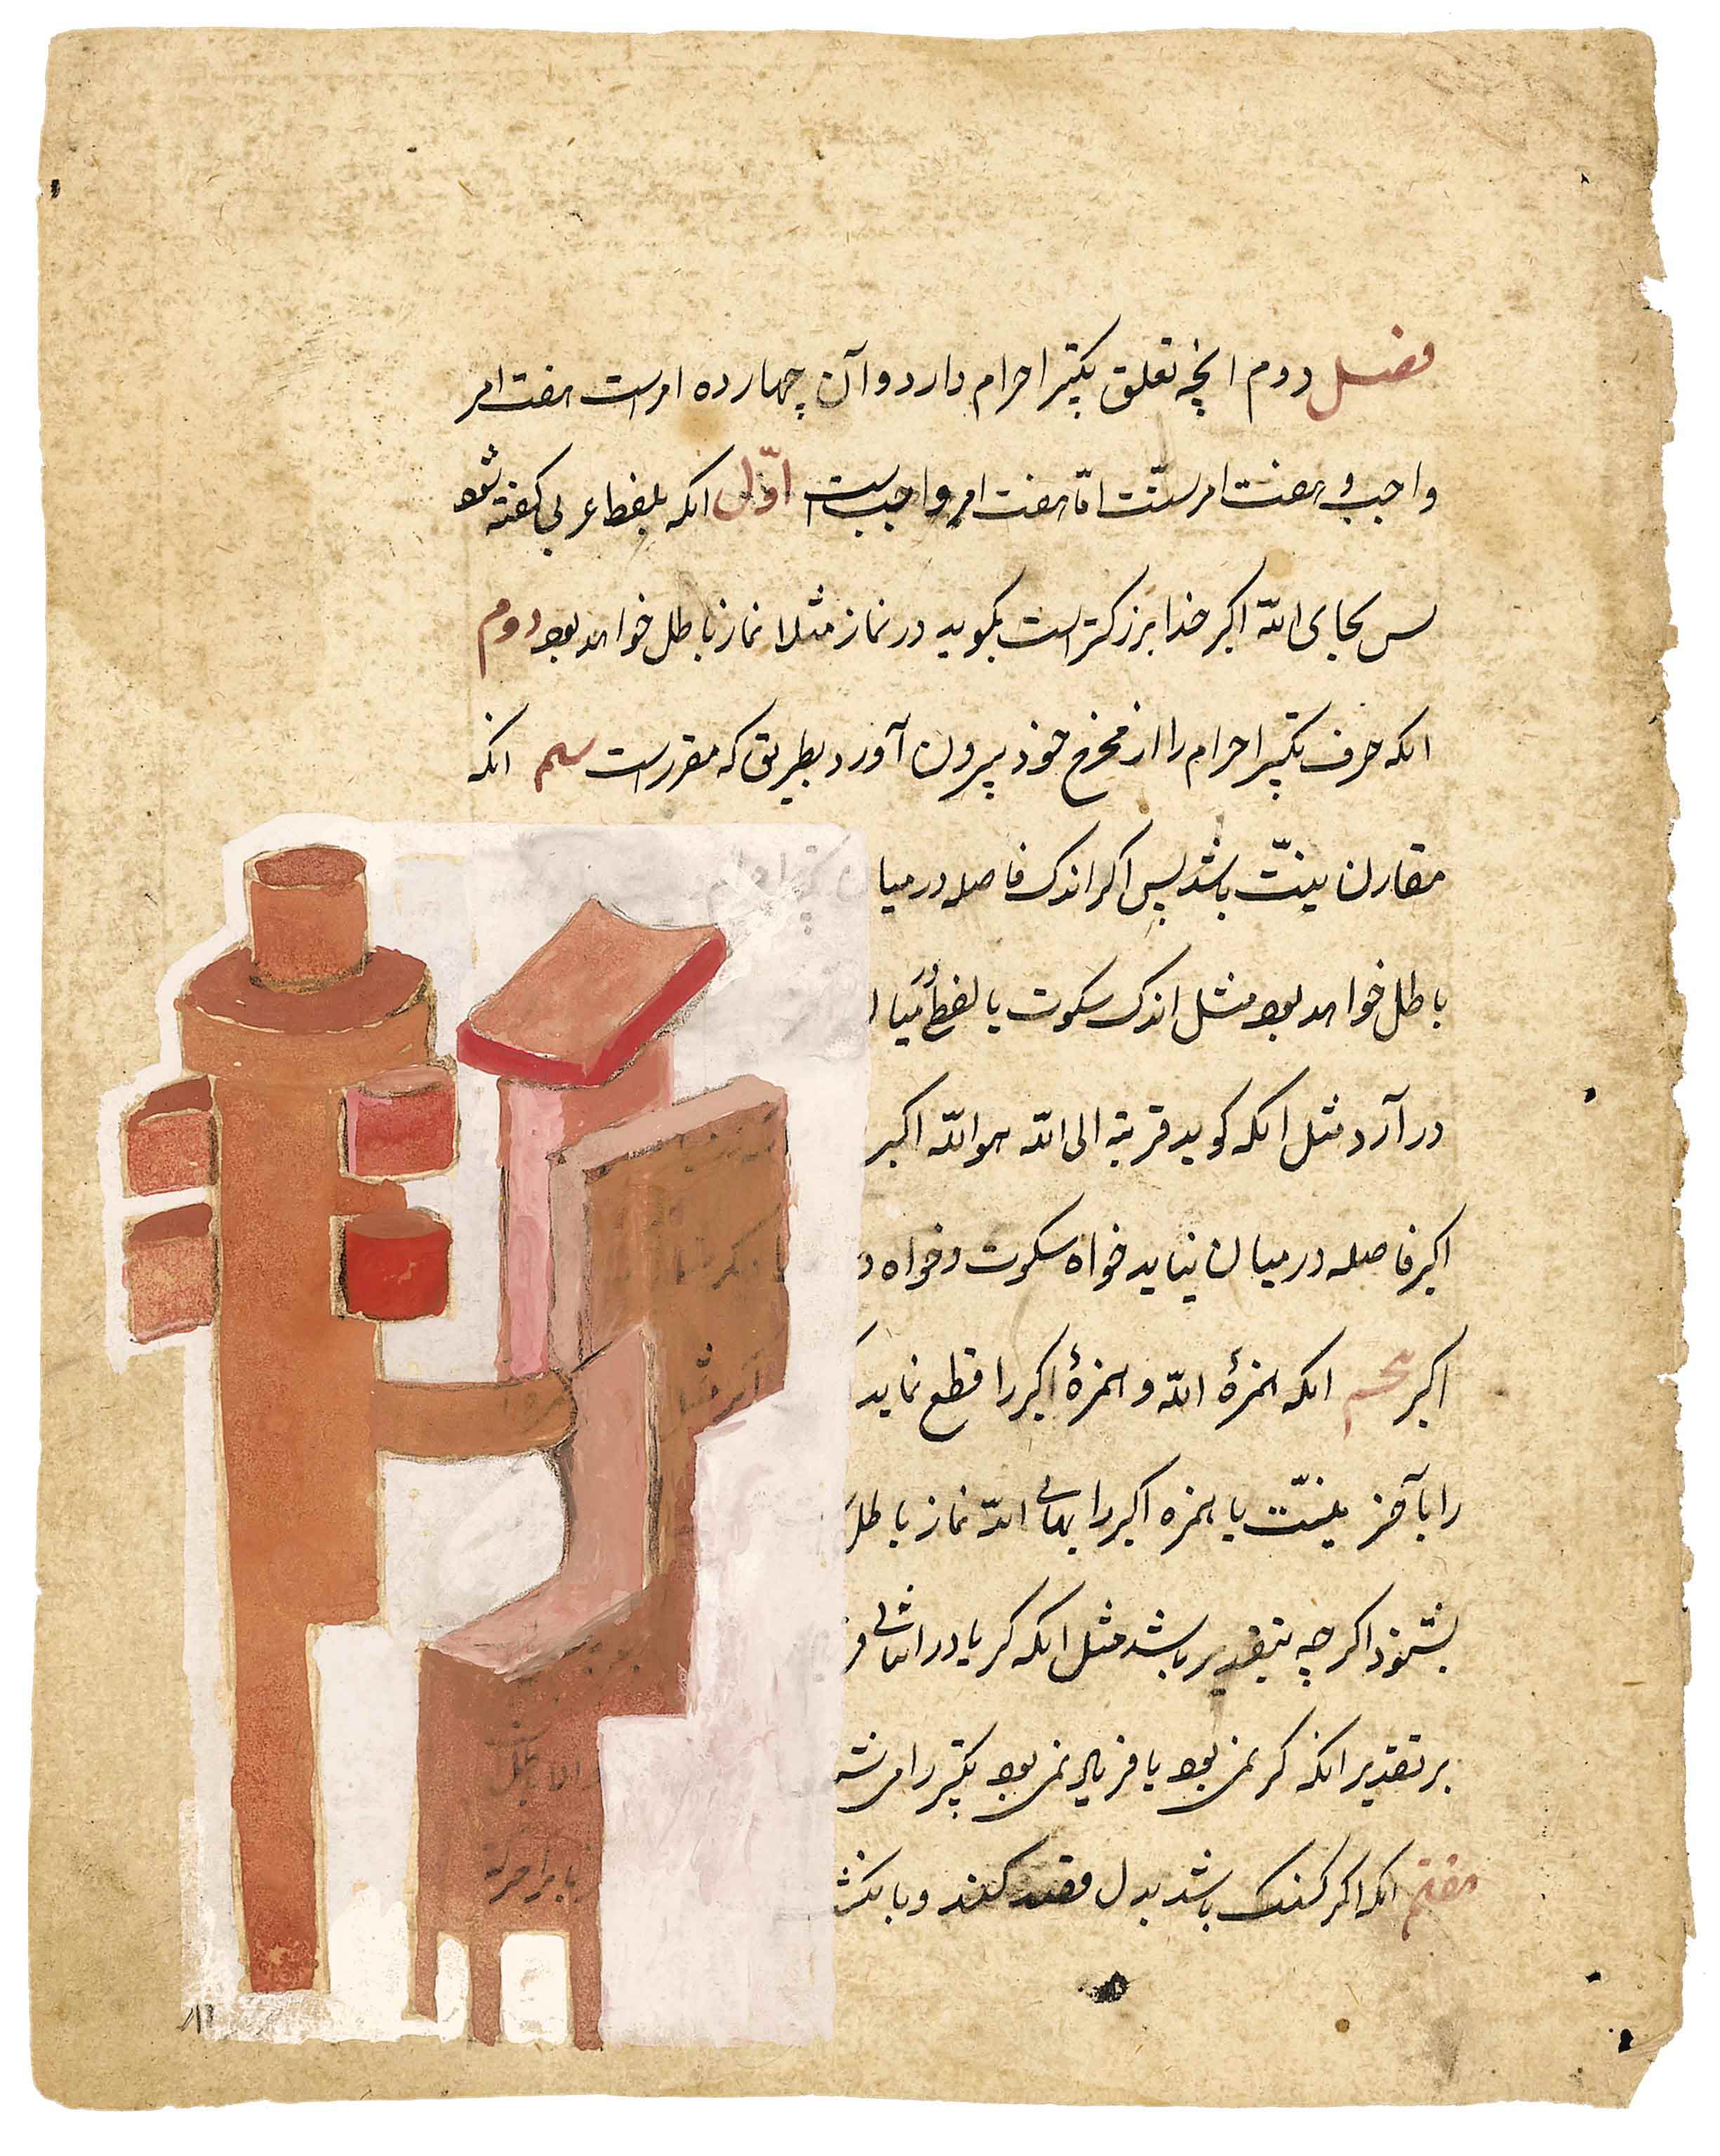 فصل دوم انچه تعلق بتکبیر احرام دارد و آن چهارده امرست هفت امر
واجب و هفت امر سنّت امّا هفت امر واجبست اوّل انکه بلفظ عربی کفته شود
پس بجای اللّه اکبر خدا بزرکتر است بکوید در نماز مثلا نماز باطل خواهد بود دوم
انکه حرف تکبیر احرام را از مخرج خود بیرون آورد بطریق که مقررست سیم انکه
مقارن بنیّت باشد پس اکر اندک فاصله در میان
باطل خواهد بود مثل اندک سکوت یا لفظ
در آرد مثل انکه کوید قربة الی اللّه هو اللّه اکبر
اکبر فاصله در میان نیاید خواه سکوت و خواه
اکبر پنجم انکه همزهٔ اللّه و همزهٔ اکبر را قطع نماید
را بآخر بنیّت یا همزه اکبر را بهای اللّه نماز باطل
بشنود اکرچه بتقدیر باشد مثل انکه کر یا در اثنای
بر تقدیر انکه کر نمی بود یا فریاد نمی بود تکبیر را می
هفتم انکه اکر کنک باشد بدل قصد کند و با